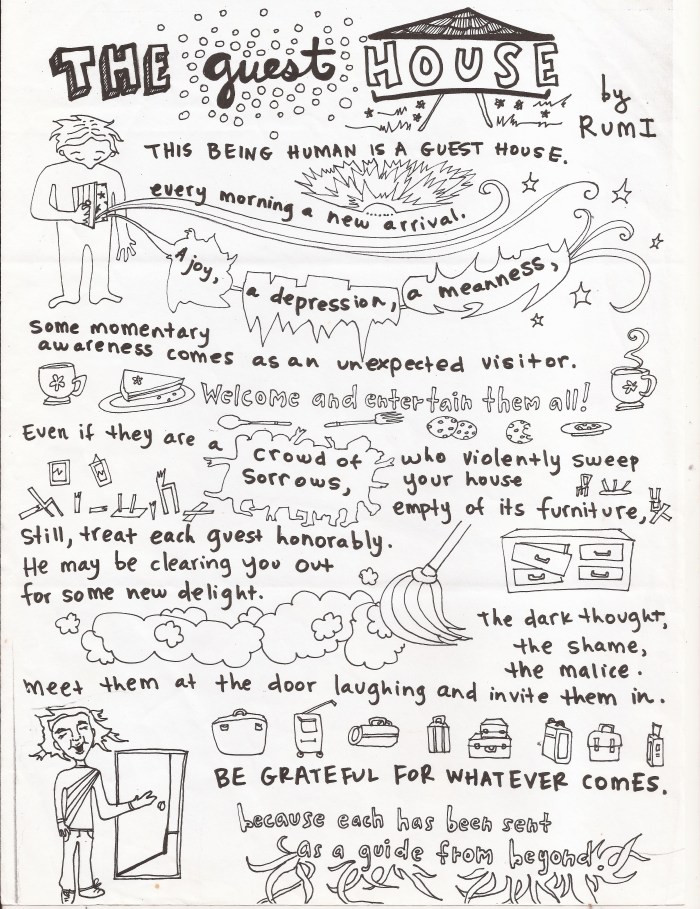 THE guest HOUSE
by RUMI
THIS BEING HUMAN IS A GUEST HOUSE.
every morning a new arrival.
A joy, a depression, a meanness,
Some momentary
awareness comes as an unexpected visitor.
Welcome and entertain them all!
Even if they are a crowd of sorrows,
who violently sweep
your house
empty of its furniture,
Still, treat each guest honorably.
He may be clearing you out
for some new delight.
The dark thought,
the shame,
the malice.
meet them at the door laughing and invite them in.
BE GRATEFUL FOR WHATEVER COMES.
because each has been sent
as a guide from beyond!